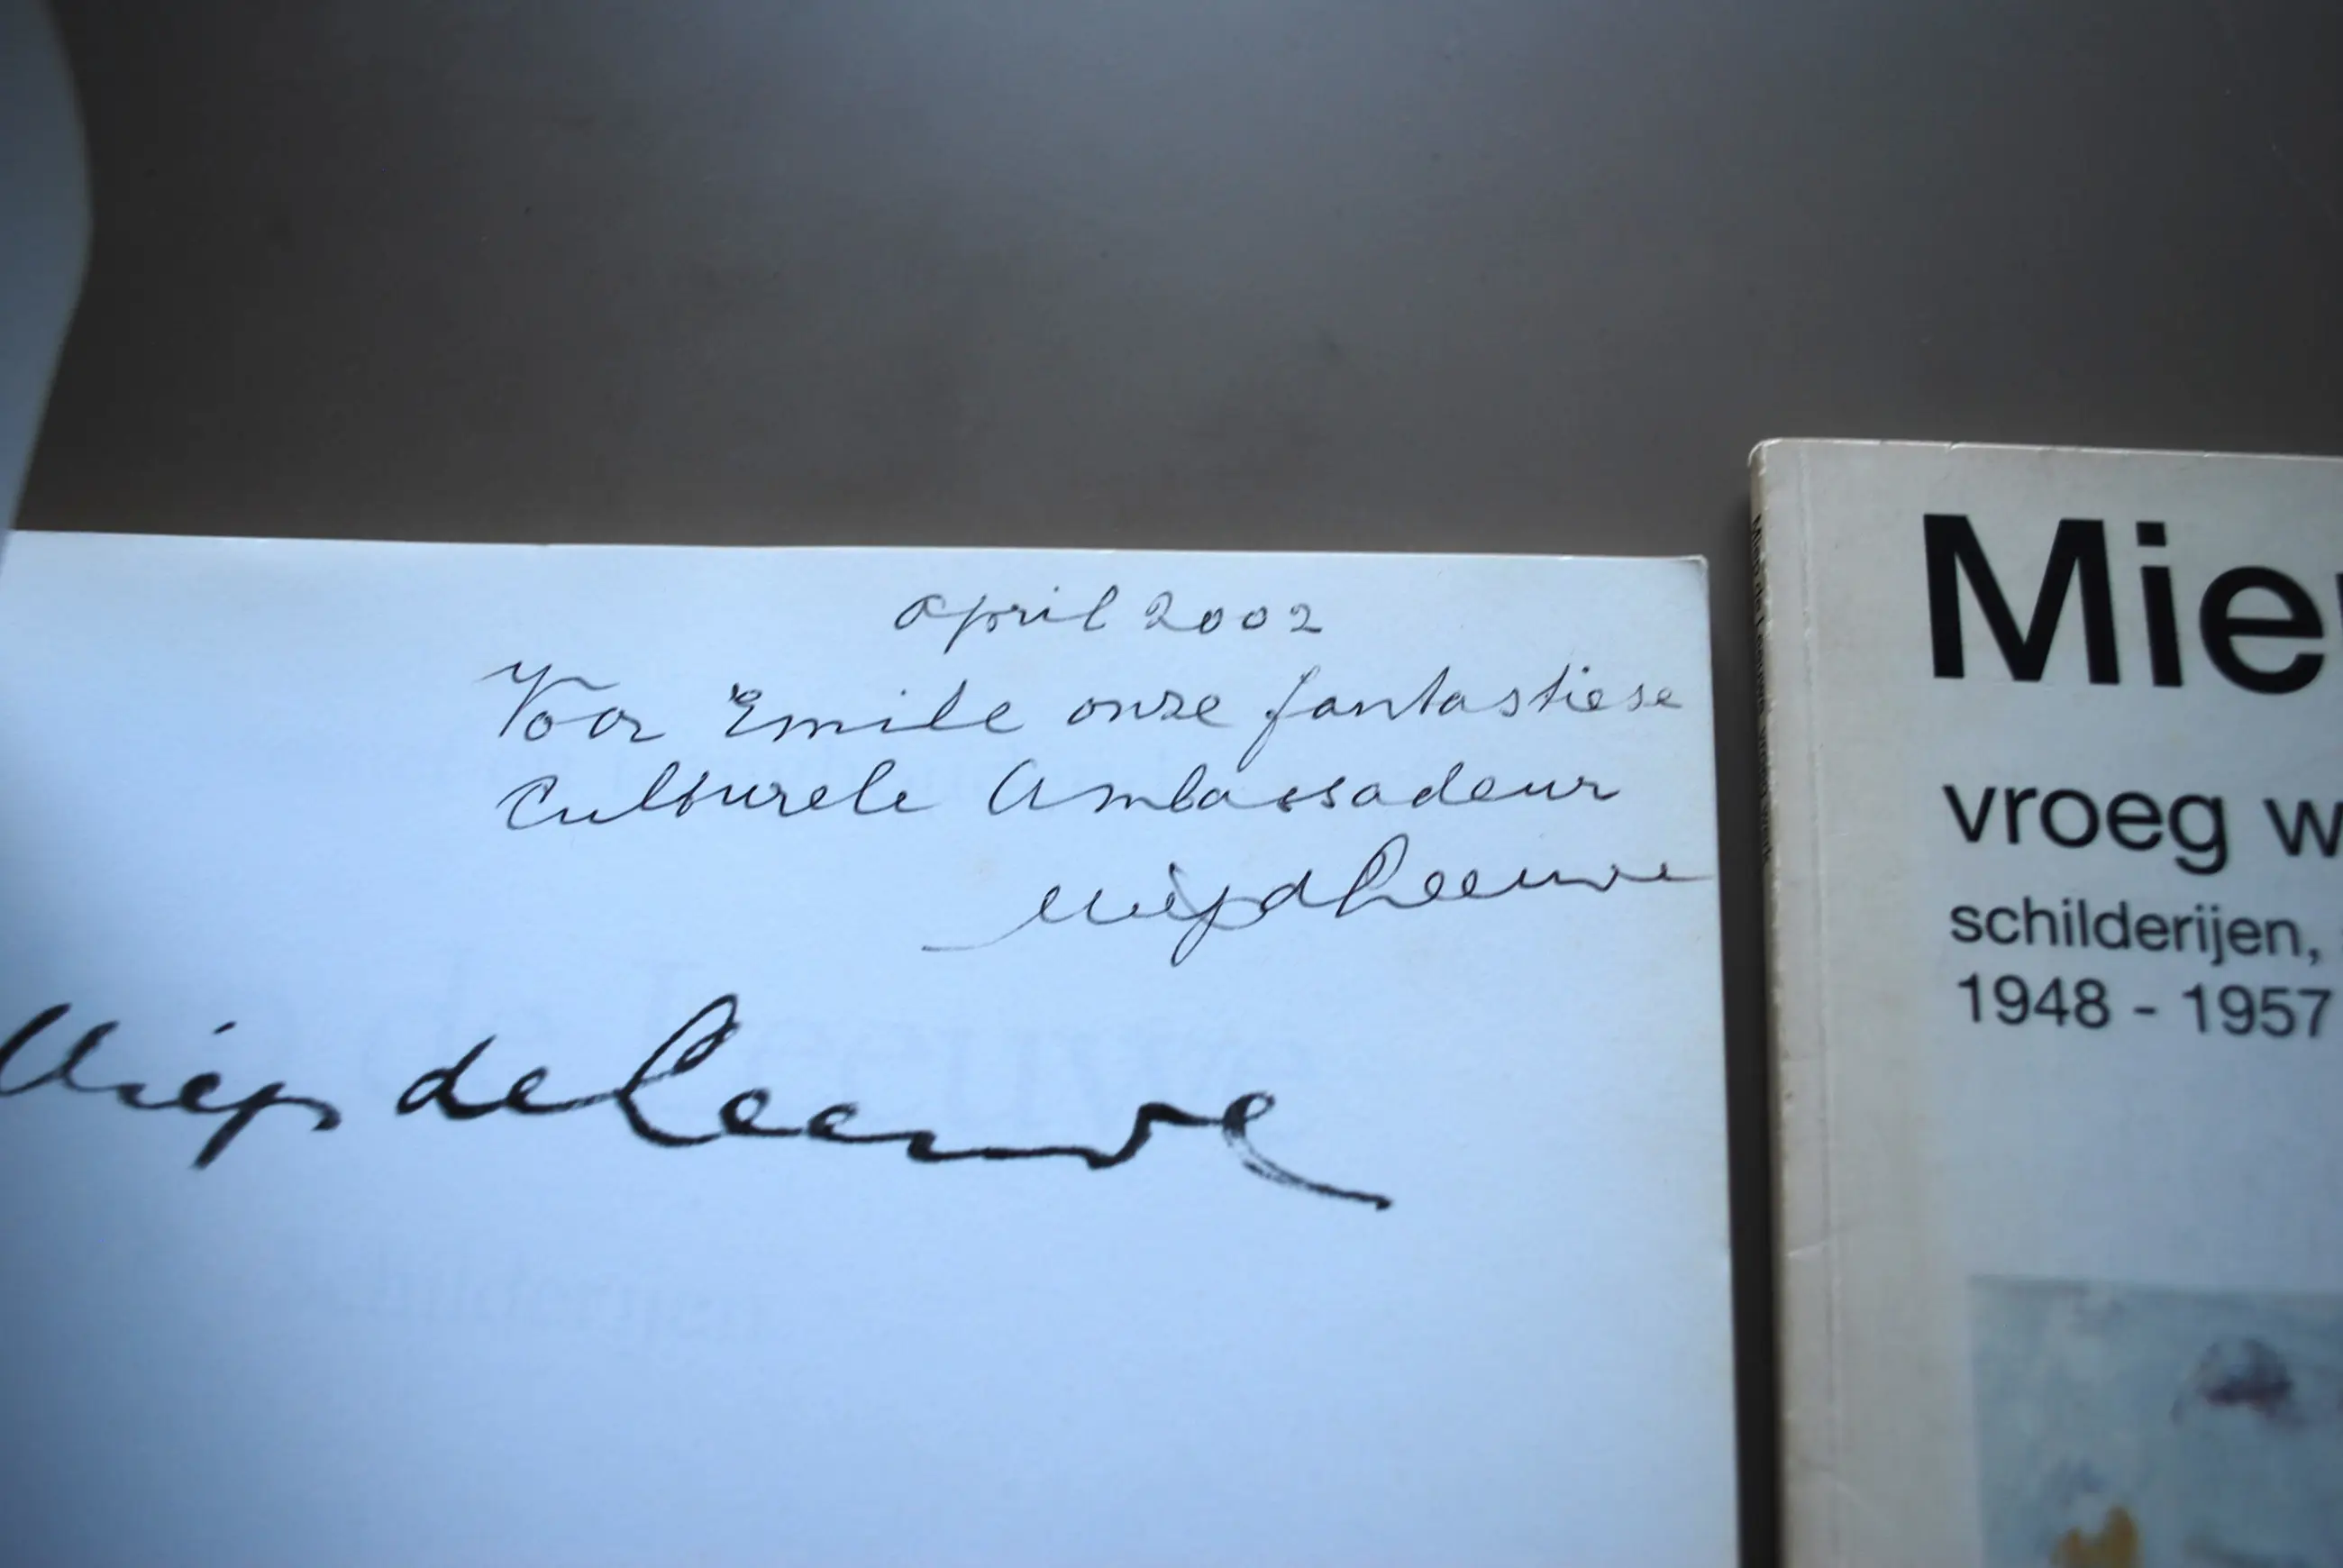 april 2002
Voor Emile onze fantastiese
Culturele Ambassadeur
Miep de Leeuwe
Miep de Leeuwe
Mie
vroeg w
schilderijen,
1948 - 1957